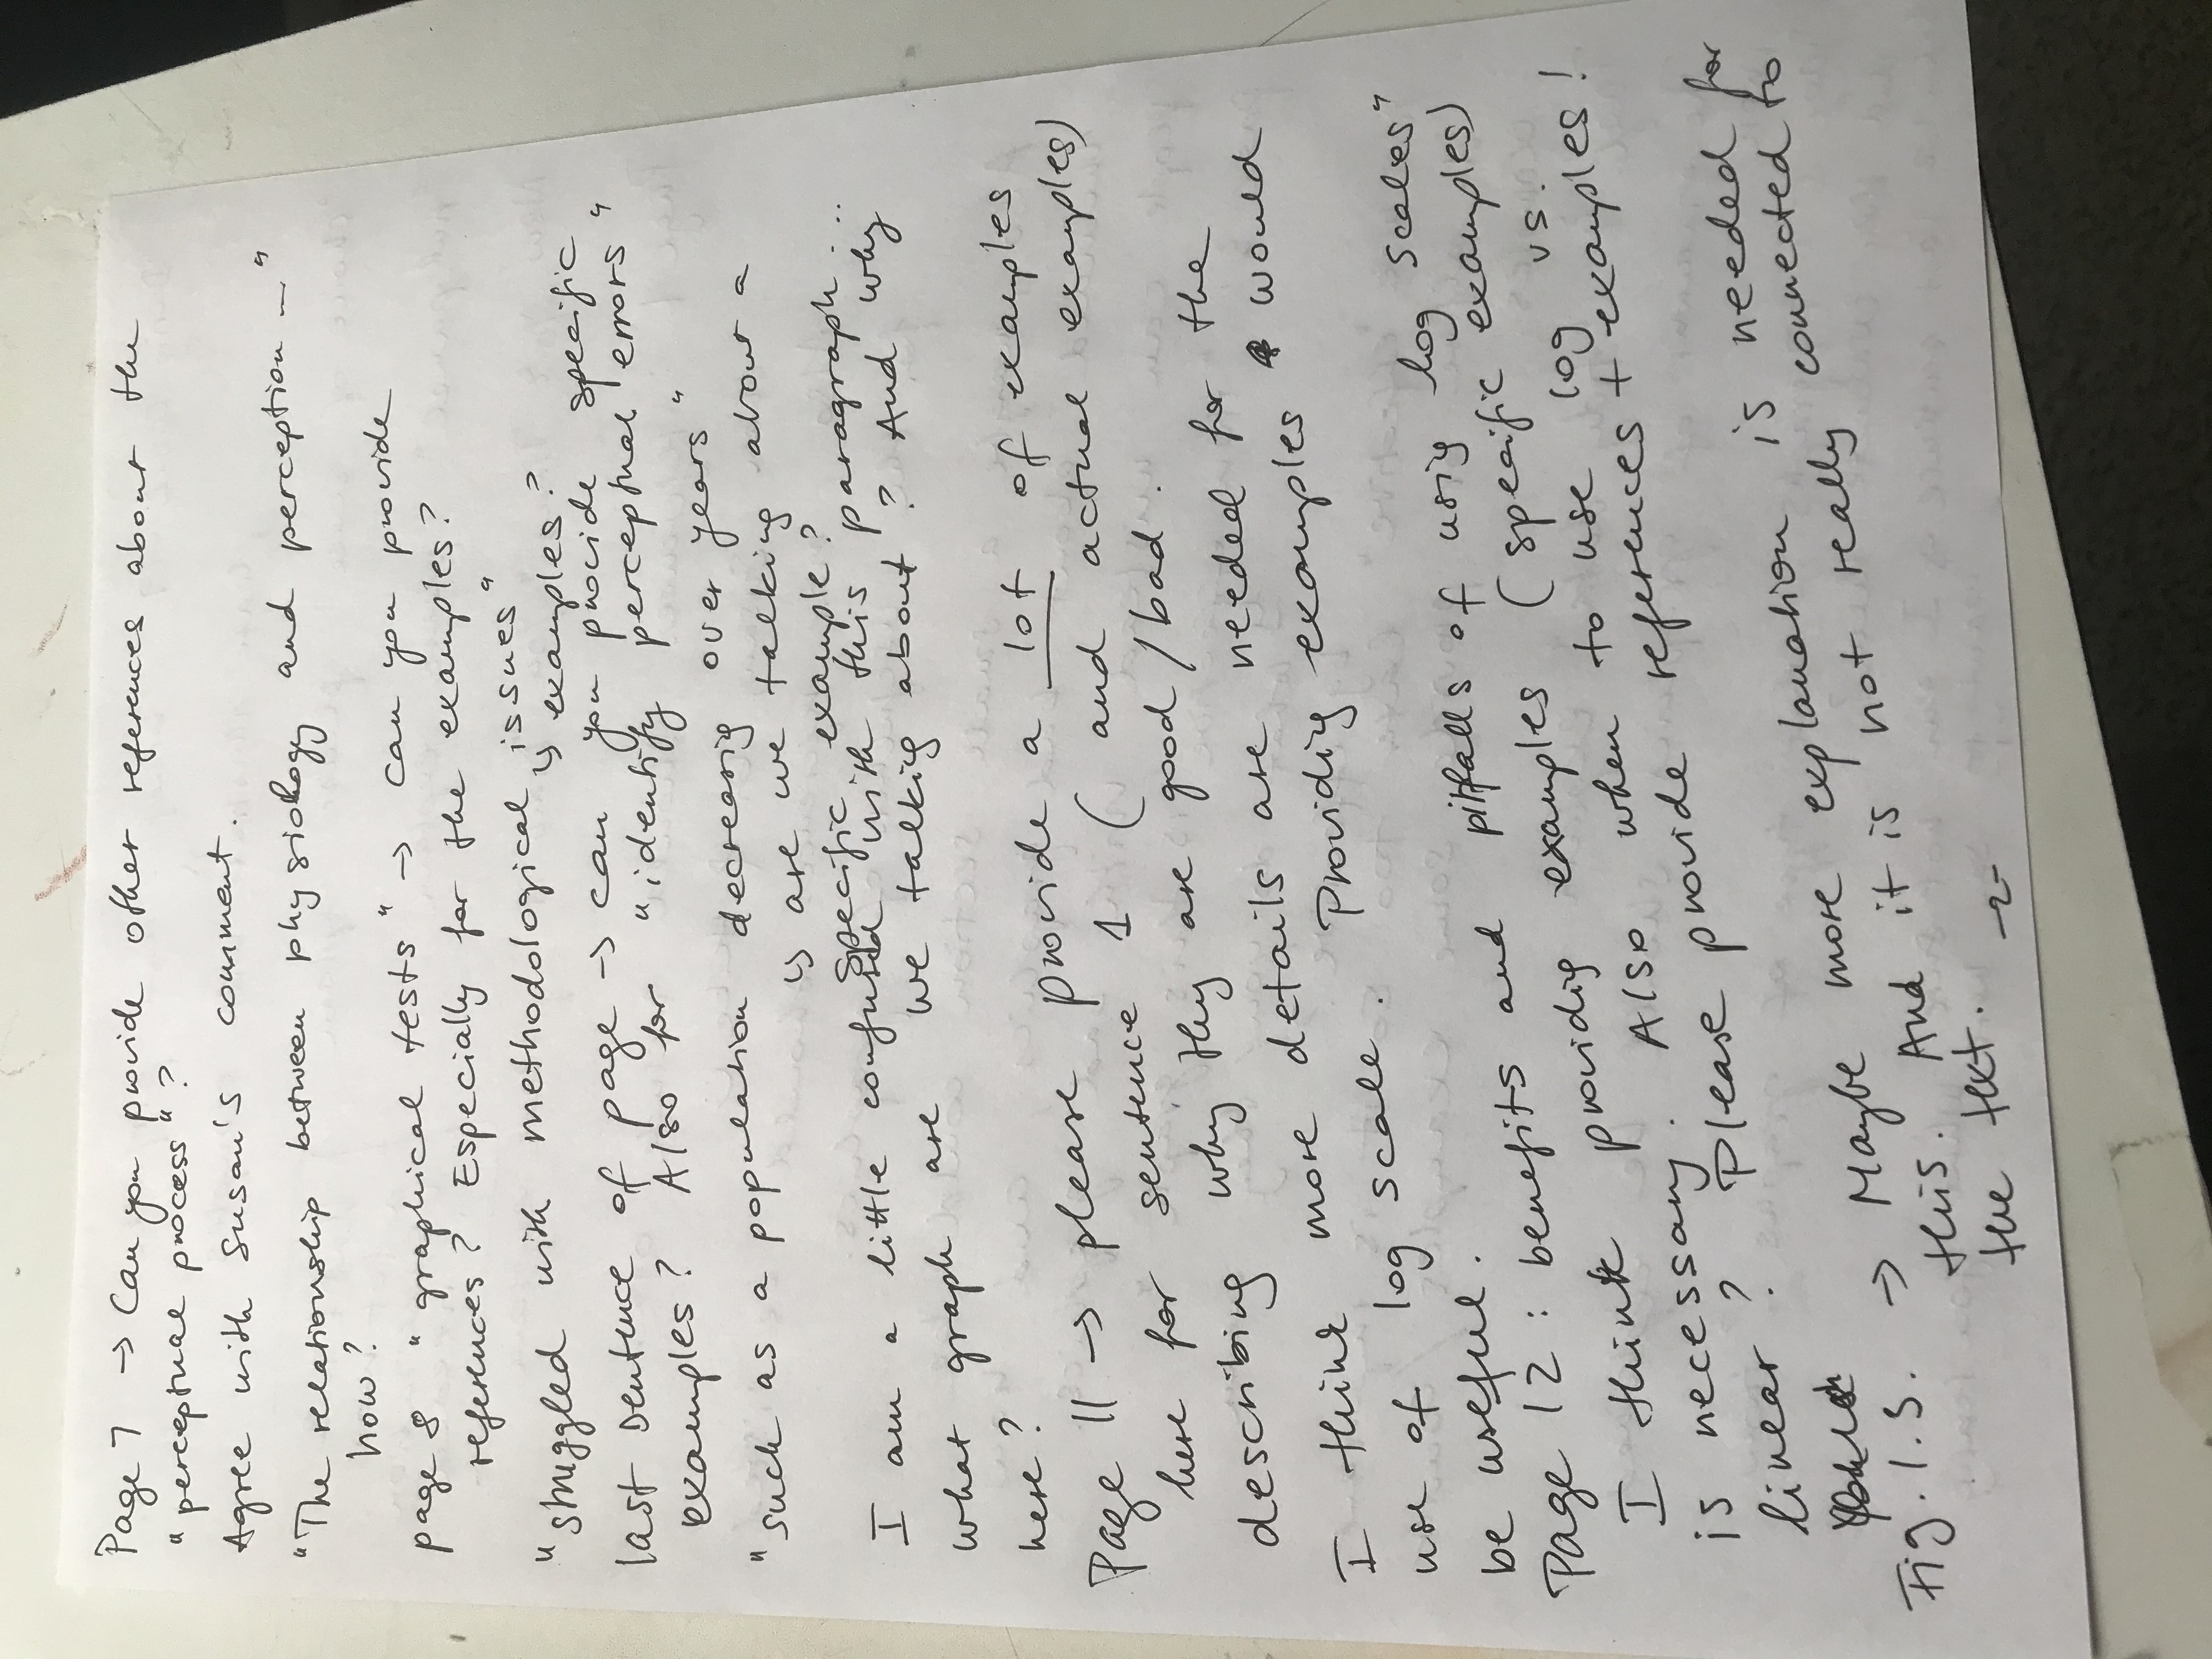 Page 7 → Can you provide other references about the
"perceptual process"?
Agree with Susan's comment.
"The relationship between physiology and perception ..."
how?
page 8 "graphical tests" → can you provide
references? Especially for the examples?
"struggled with methodological issues"
↳ examples?
last sentence of page → can you provide specific
examples? Also for "identify perceptual errors"
"such as a population decreasig over years"
↳ are we talking about a
specific example?
I am a little confused with this paragraph...
what graph are we talkig about? And why
here?
Page 11 → please provide a lot of examples
here for sentence 1 (and actual examples)
describing why they are good/bad.
I think more details are needed for the
use of log scale. Providig examples would
be useful.
Page 12: benefits and pitfalls of usig log scales"
I think providig examples (specific examples)
is necessary. Also when to use log vs.
linear? Please provide references + examples!
Fig. 1.5. → Maybe more explanation is needed for
this. And it is not really connected to
the text.
-2-